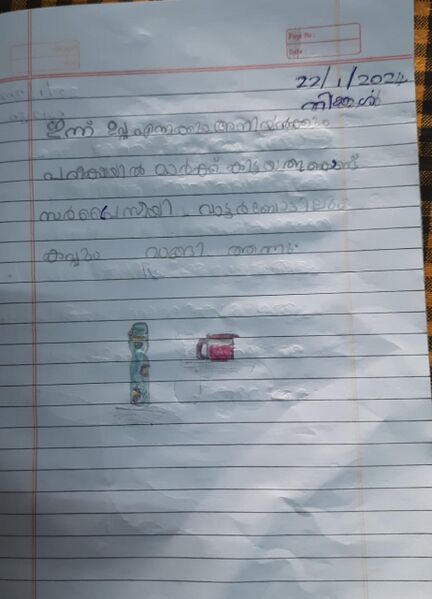 Page No :
Date
22/1/2024
തിങ്കൾ
ഇന്ന് ഉപ്പ എനിക്കും അനിയൻക്കും
പരീക്ഷയിൽ മാർക്ക് കിട്ടിയതുകൊണ്ട്
സർപ്രൈസായി വാട്ടർബോട്ടിലും
കപ്പും വാങ്ങി തന്നു.